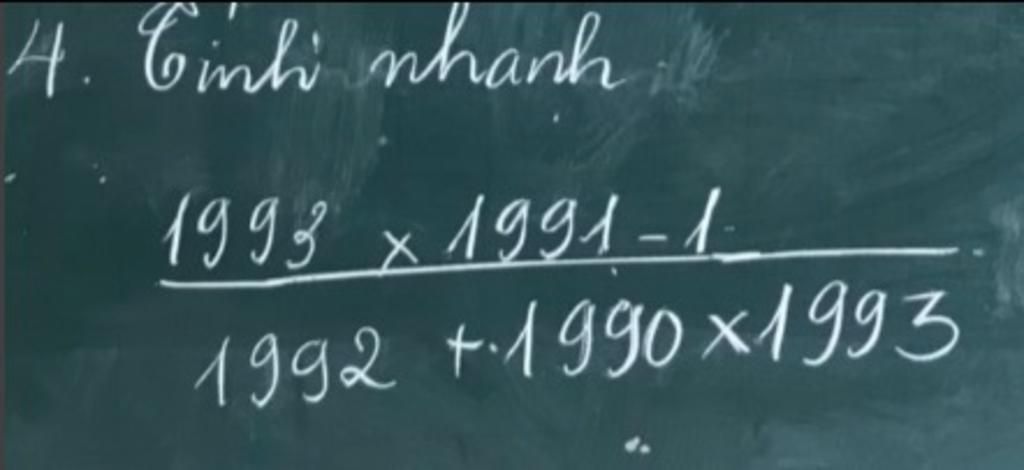 4. Tính nhanh
1993 × 1991 - 1
1992 + 1990 × 1993